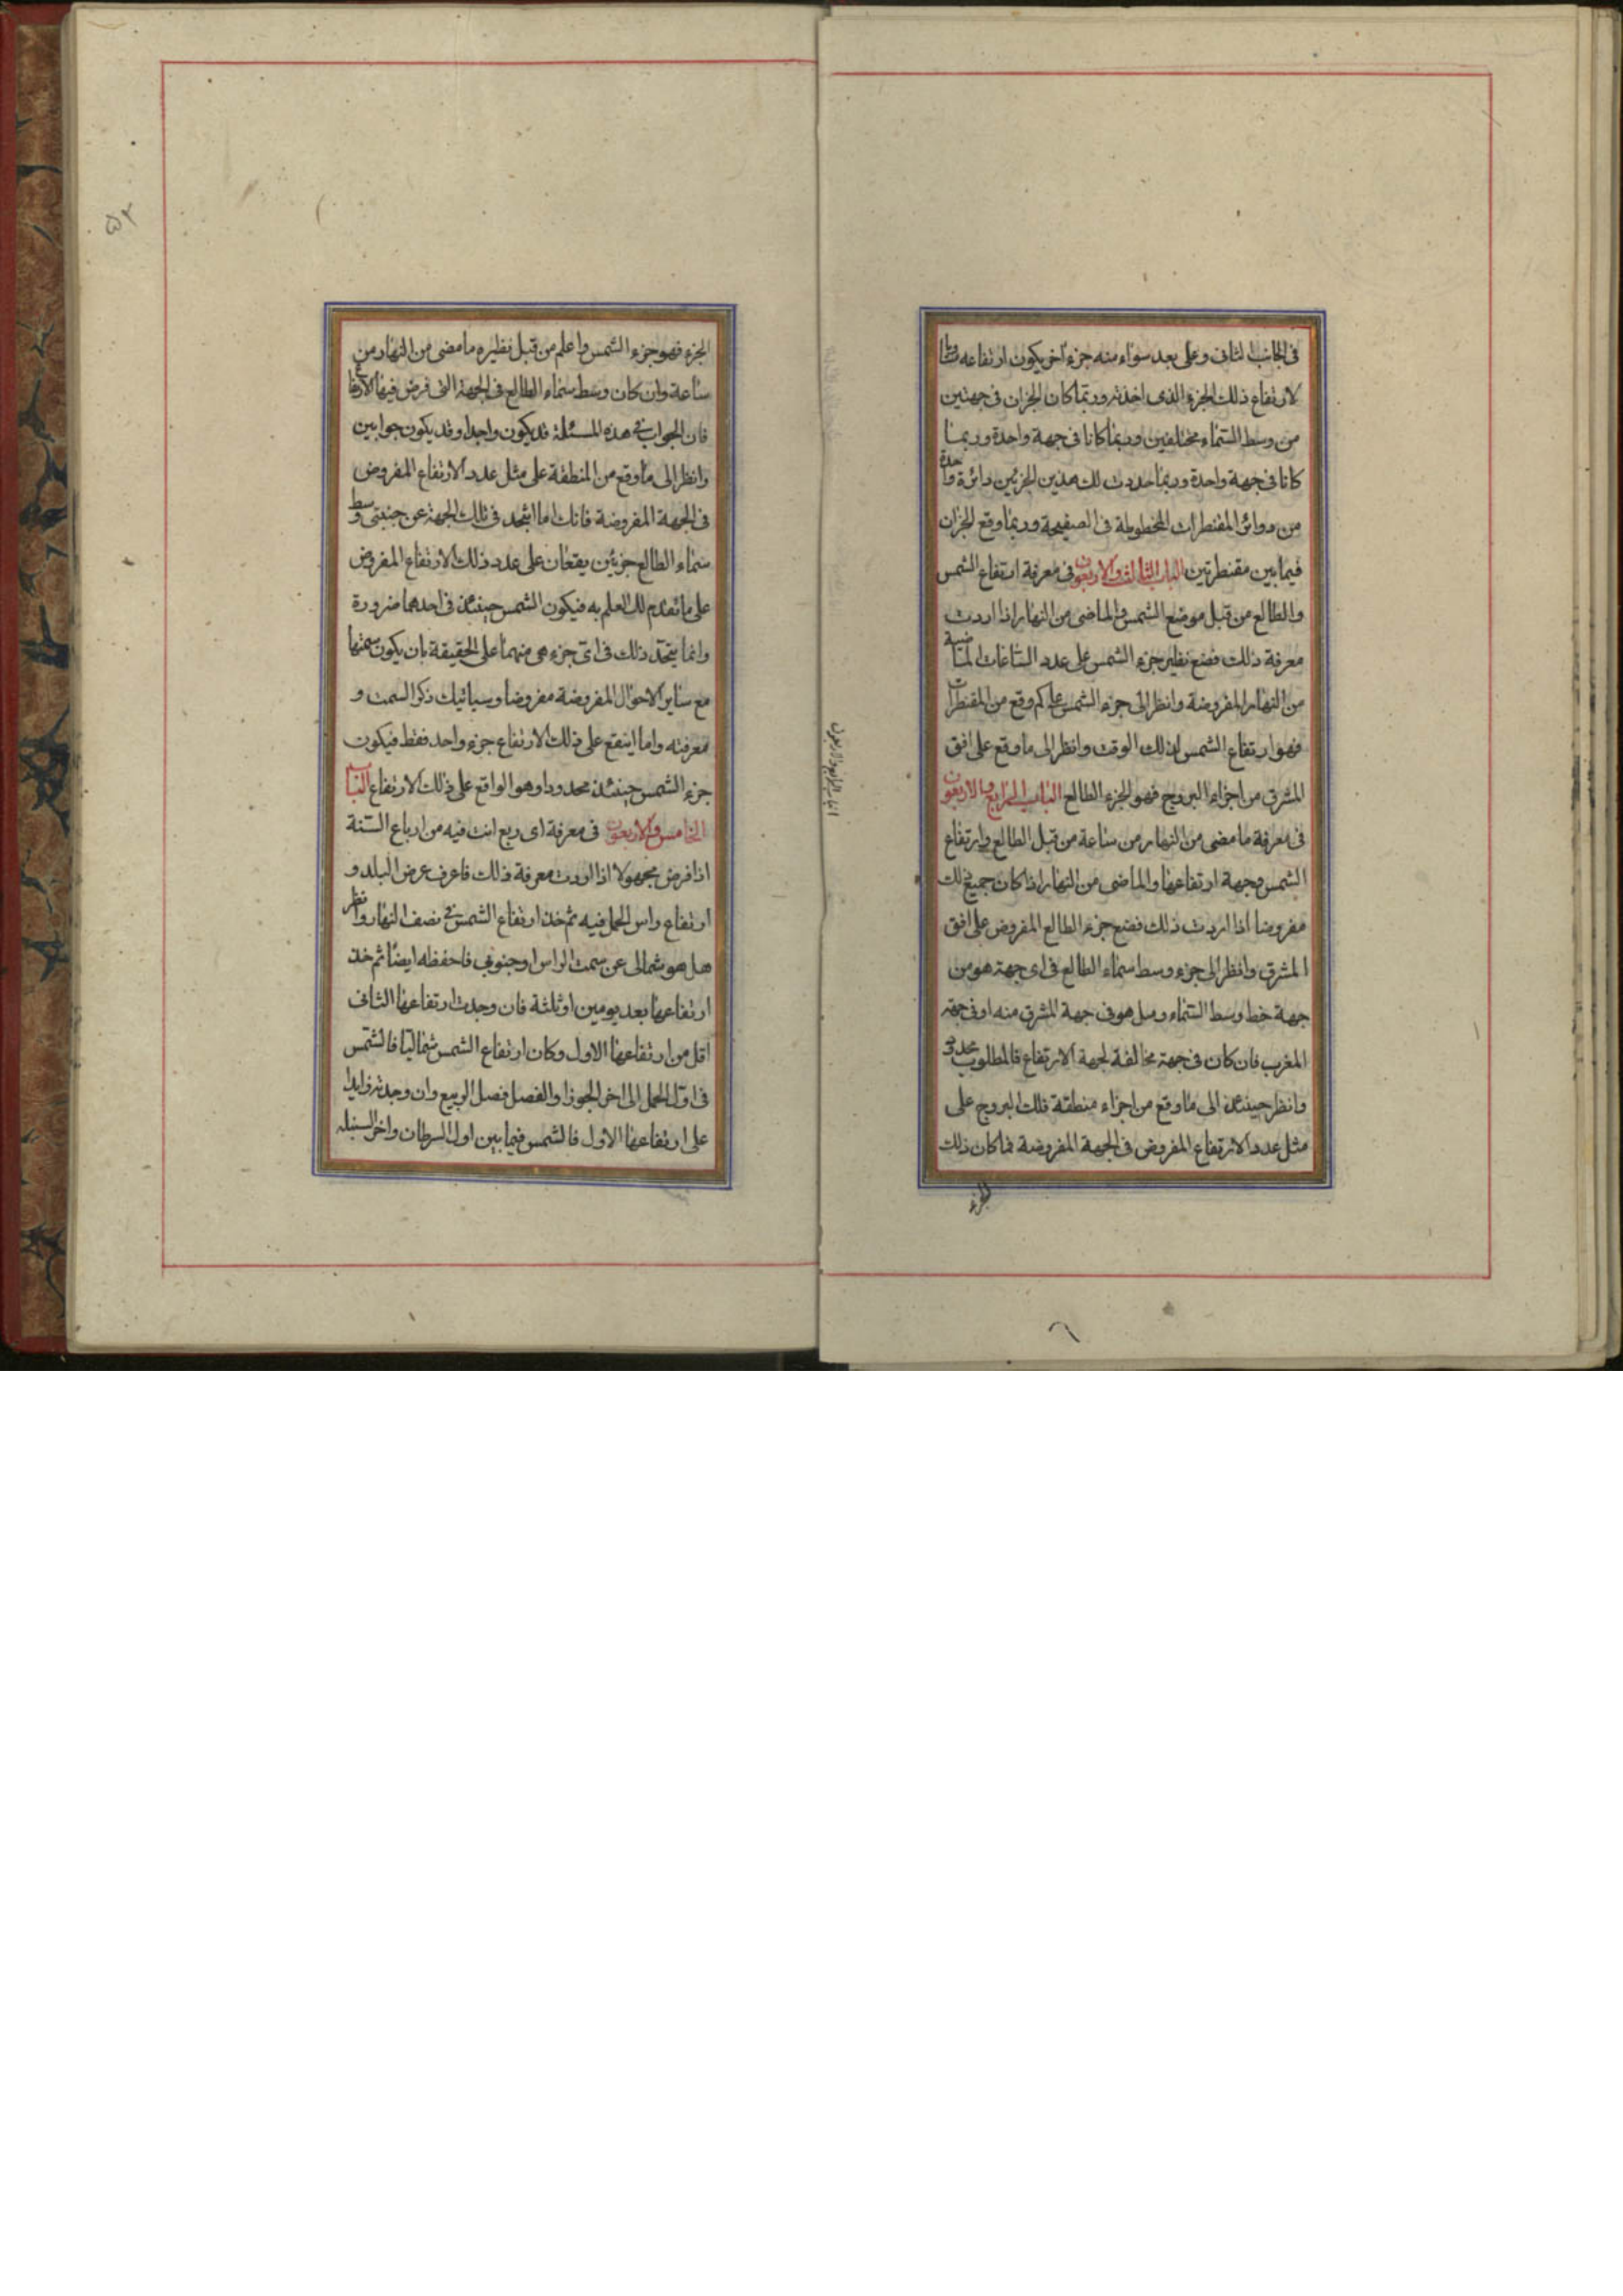 في الجانب الثاني وعلى بعد سواء منه جزء اخر يكون ارتفاعه مساويا
لارتفاع ذلك الجزء الذي اخذته وربما كان الجزان في جهتين
من وسط السماء مختلفين وربما كانا في جهة واحدة وربما
كانا في جهة واحدة وربما حددت لك هذين الجزئين دائرة واحدة
من دوائر المقنطرات المخطوطة في الصفيحة وربما وقع الجزان
فيما بين مقنطرتين الباب الثالث والاربعون في معرفة ارتفاع الشمس
والطالع من قبل موضع الشمس والماضي من النهار اذا اردت
معرفة ذلك فضع نظير جزء الشمس على عدد الساعات الماضية
من النهار المفروضة وانظر الى جزء الشمس على كم وقع من المقنطرات
فهو ارتفاع الشمس لذلك الوقت وانظر الى ما وقع على افق
المشرق من اجزاء البروج فهو الجزء الطالع الباب الرابع والاربعون
في معرفة ما مضى من النهار من ساعة من قبل الطالع وارتفاع
الشمس وجهة ارتفاعها والماضي من النهار اذا كان جميع ذلك
مفروضا اذا اردت ذلك فضع جزء الطالع المفروض على افق
المشرق وانظر الى جزء وسط سماء الطالع في اي جهة هو من
جهة خط وسط السماء وهل هو في جهة المشرق منه او في جهة
المغرب فان كان في جهة مخالفة لجهة الارتفاع فالمطلوب محدود
وانظر حينئذ الى ما وقع من اجزاء منطقة فلك البروج على
مثل عدد الارتفاع المفروض في الجهة المفروضة فما كان ذلك
الجزء
الباب الرابع والاربعون
٥٢
الجزء فهو جزء الشمس واعلم من قبل نظيره ما مضى من النهار من
ساعة وان كان وسط سماء الطالع في الجهة التي فرض فيها الارتفاع
فان الجواب في هذه المسئلة قد يكون واحدا وقد يكون جوابين
وانظر الى ما وقع من المنطقة على مثل عدد الارتفاع المفروض
في الجهة المفروضة فانك اما ان تجد في تلك الجهة عن جنبتي وسط
سماء الطالع جزئين يقعان على عدد ذلك الارتفاع المفروض
على ما تقدم لك العلم به فيكون الشمس حينئذ في احدهما ضرورة
وانما يتحدد ذلك في اي جزء هي منهما على الحقيقة بان يكون سمتها
مع ساير الاحوال المفروضة مفروضا وسياتيك ذكر السمت و
معرفته واما ان يقع على ذلك الارتفاع جزء واحد فقط فيكون
جزء الشمس حينئذ محدودا وهو الواقع على ذلك الارتفاع الباب
الخامس والاربعون في معرفة اي ربع انت فيه من ارباع السنة
اذا فرض مجهولا اذا اردت معرفة ذلك فاعرف عرض البلد و
ارتفاع راس الحمل فيه ثم خذ ارتفاع الشمس في نصف النهار وانظر
هل هو شمالي عن سمت الراس او جنوبي فاحفظه ايضا ثم خذ
ارتفاعها بعد يومين او ثلثة فان وجدت ارتفاعها الثاني
اقل من ارتفاعها الاول وكان ارتفاع الشمس شماليا فالشمس
في اول الحمل الى اخر الجوزا والفصل فصل الربيع وان وجدته زايدا
على ارتفاعها الاول فالشمس فيما بين اول السرطان واخر السنبله